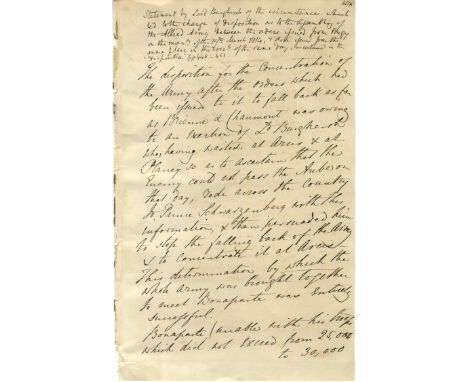 Statement by Lord Burghersh of the circumstance which
led to the change of disposition as to the assembling of
the Allied Army between the orders issued from Pougy
in the morng of the 19th March 1814, & those issued from the
same place in the eveng of the same day,
The disposition for the Concentration of
the Army after the orders which had
been issued to it to fall back as far
as Brienne & Chaumont was owing
to an exertion of Ld Burghersh
who having waited at Arcis & at
Plancy so as to ascertain that the
Enemy could not pass the Aube on
that day, rode across the Country
to Prince Schwarzenberg with this
information, & then persuaded him
to stop the falling back of the Army
& to concentrate it at Arcis
This determination by which the
whole Army was brought together
to meet Bonaparte was Entirely
successful.
Bonaparte (unable with his troops
which did not exceed from 25,000
to 30,000